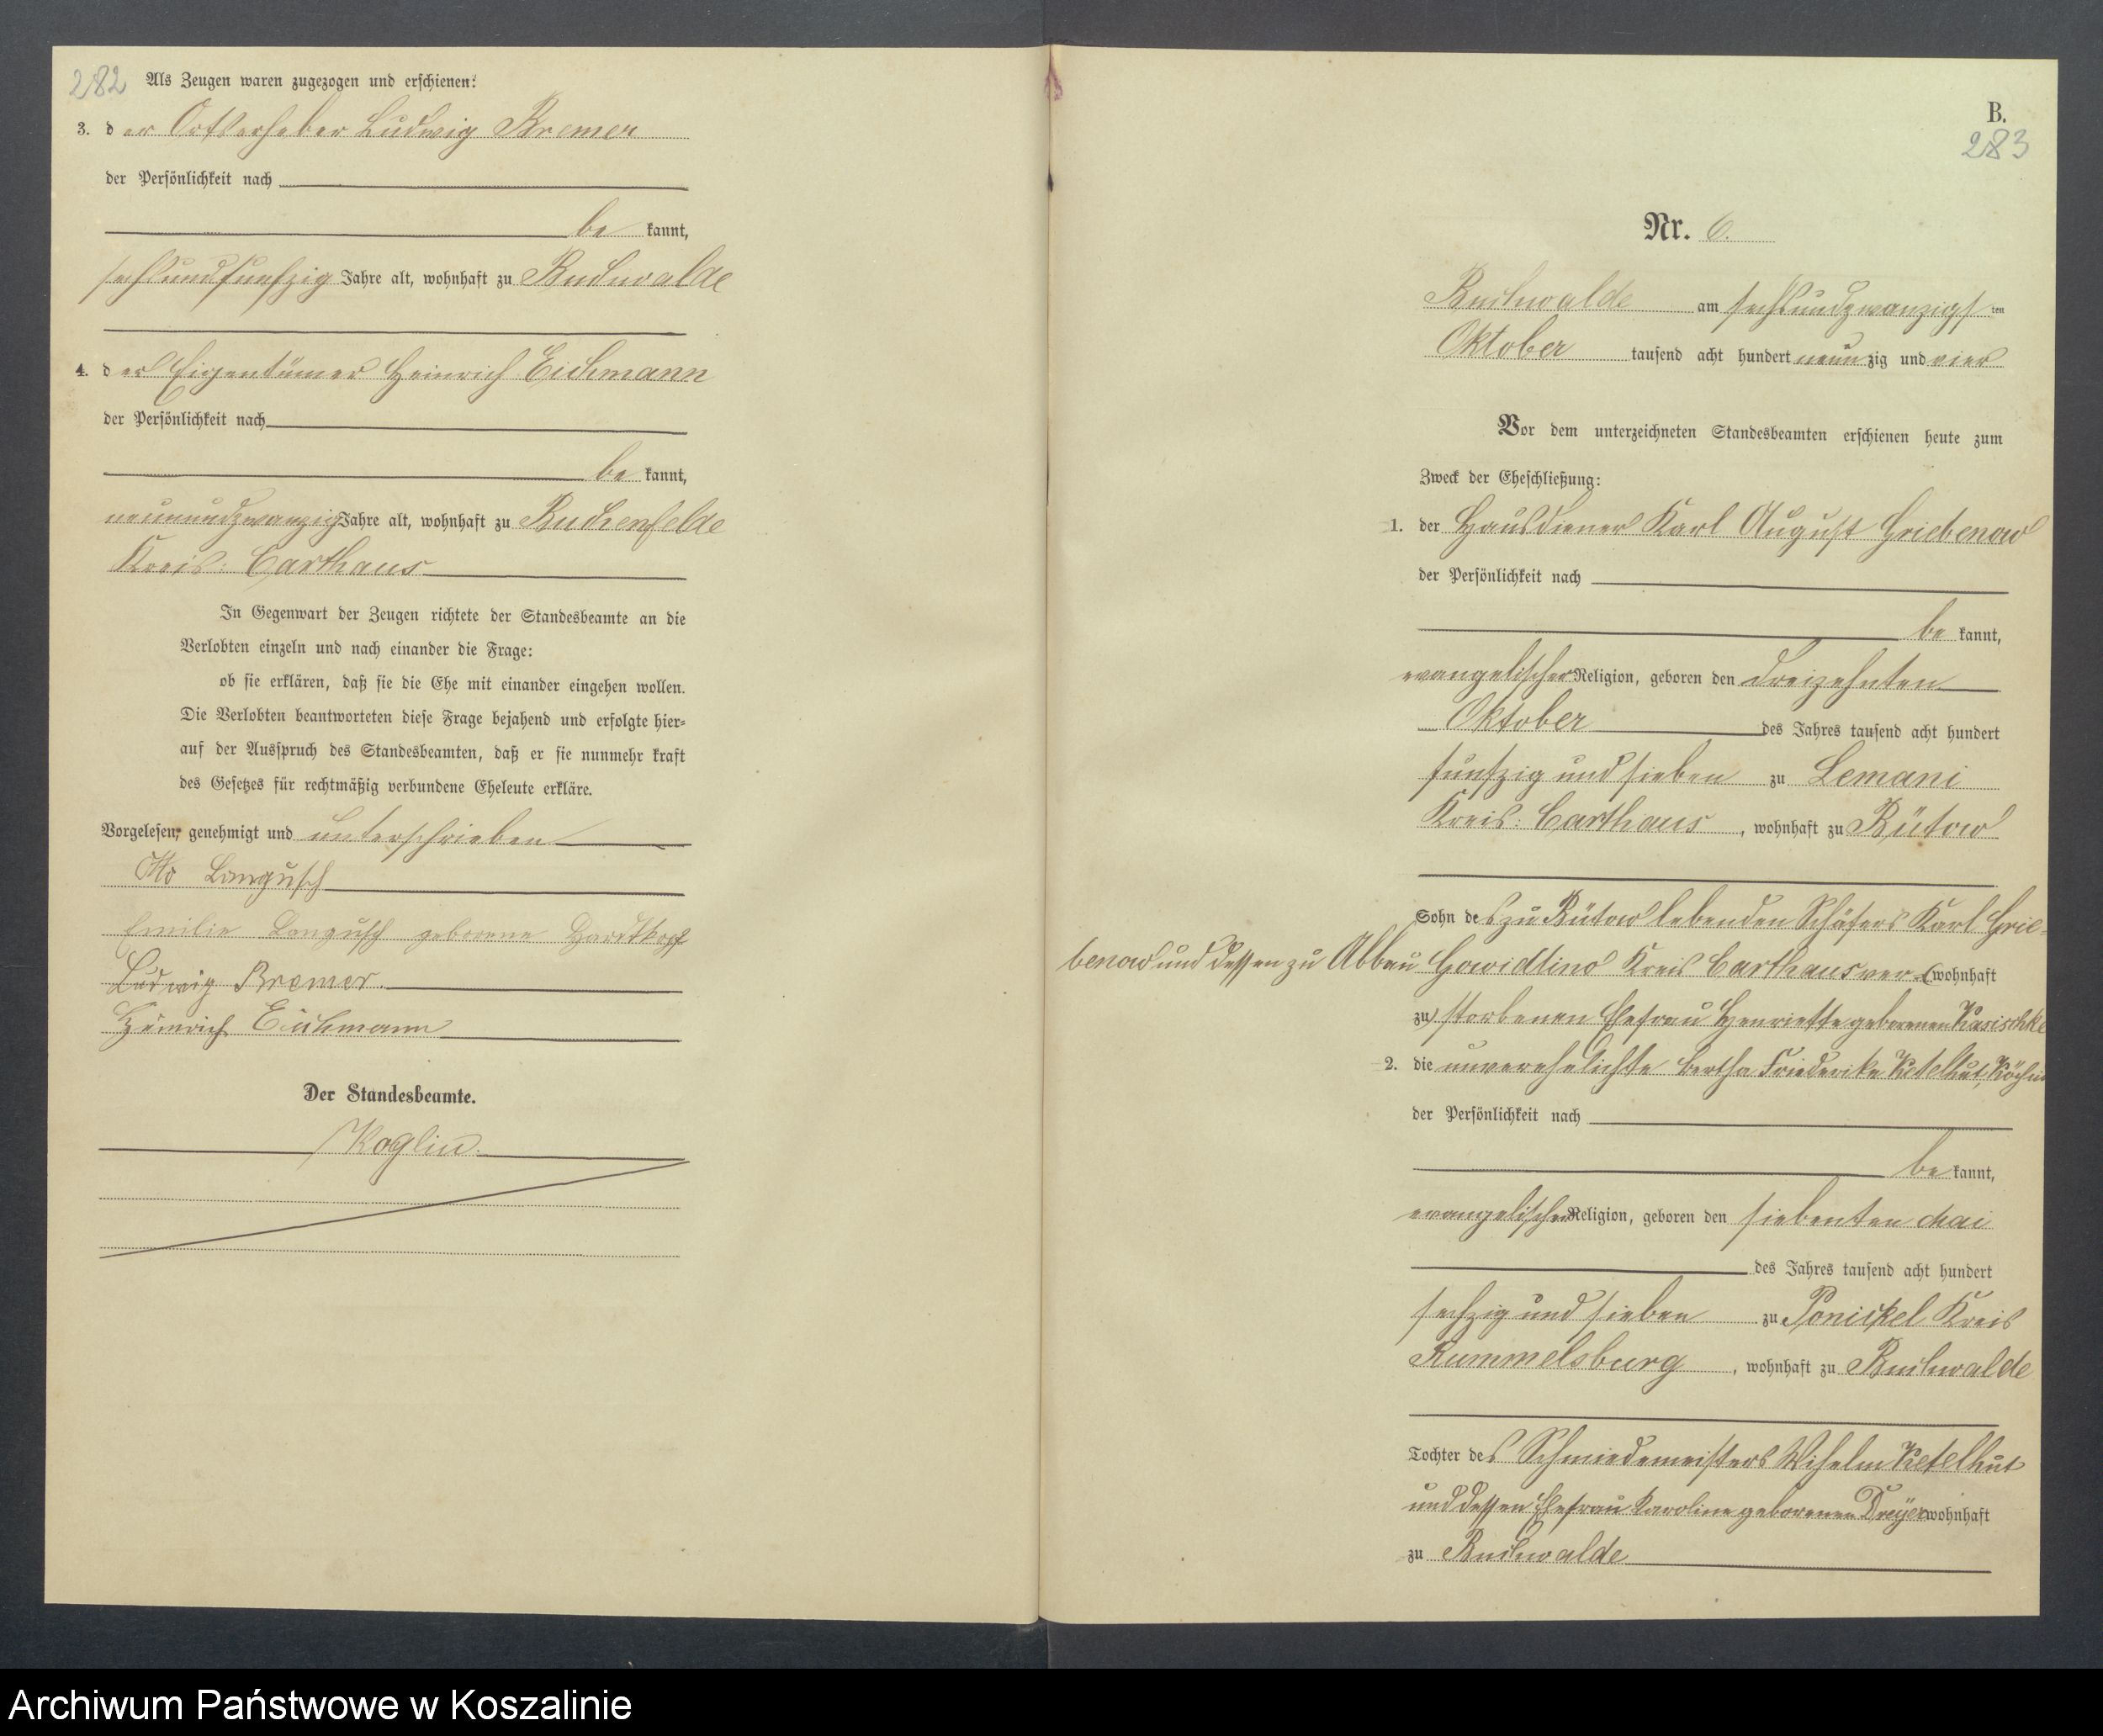 282
Als Zeugen waren zugezogen und erschienen:
3. der Ortserheber Ludwig Bremer
der Persönlichkeit nach
be kannt,
sechsundfunfzig Jahre alt, wohnhaft zu Buchwalde
4. der Eigentümer Heinrich Eichmann
der Persönlichkeit nach
be kannt,
neunundzwanzig Jahre alt, wohnhaft zu Buchenfelde
Kreis: Carthaus
In Gegenwart der Zeugen richtete der Standesbeamte an die
Verlobten einzeln und nach einander die Frage:
ob sie erklären, daß sie die Ehe mit einander eingehen wollen.
Die Verlobten beantworteten diese Frage bejahend und erfolgte hier-
auf der Ausspruch des Standesbeamten, daß er sie nunmehr kraft
des Gesetzes für rechtmäßig verbundene Eheleute erkläre.
Vorgelesen, genehmigt und unterschrieben
Otto Langusch
Emilie Langusch geborene
Ludwig Bremer.
Heinrich Eichmann
Der Standesbeamte.
Koglin.
B.
283
Nr. 6.
Buchwalde am sechsundzwanzigsten
Oktober tausend acht hundert neunzig und vier
Vor dem unterzeichneten Standesbeamten erschienen heute zum
Zweck der Eheschließung:
1. der Hausdiener Karl August Griebenow
der Persönlichkeit nach
be kannt,
evangelischer Religion, geboren den dreizehnten
Oktober des Jahres tausend acht hundert
funfzig und sieben zu Lemani
Kreis: Carthaus, wohnhaft zu Bütow
Sohn des zu Bütow lebenden Schäfers Karl Grie-
benow und dessen zu Abbau Gowidlino Kreis Carthaus ver- (wohnhaft
zu) storbenen Ehefrau Henriette geborenen Kasischke
2. die unverehelichte Bertha Friederike Ketelhut, Köchin
der Persönlichkeit nach
be kannt,
evangelischer Religion, geboren den siebenten Mai
des Jahres tausend acht hundert
sechzig und sieben zu Ponickel Kreis
Rummelsburg, wohnhaft zu Buchwalde
Tochter des Schmiedemeisters Wihelm Ketelhut
und dessen Ehefrau Karoline geborenen Dreyer wohnhaft
zu Buchwalde
Archiwum Państwowe w Koszalinie